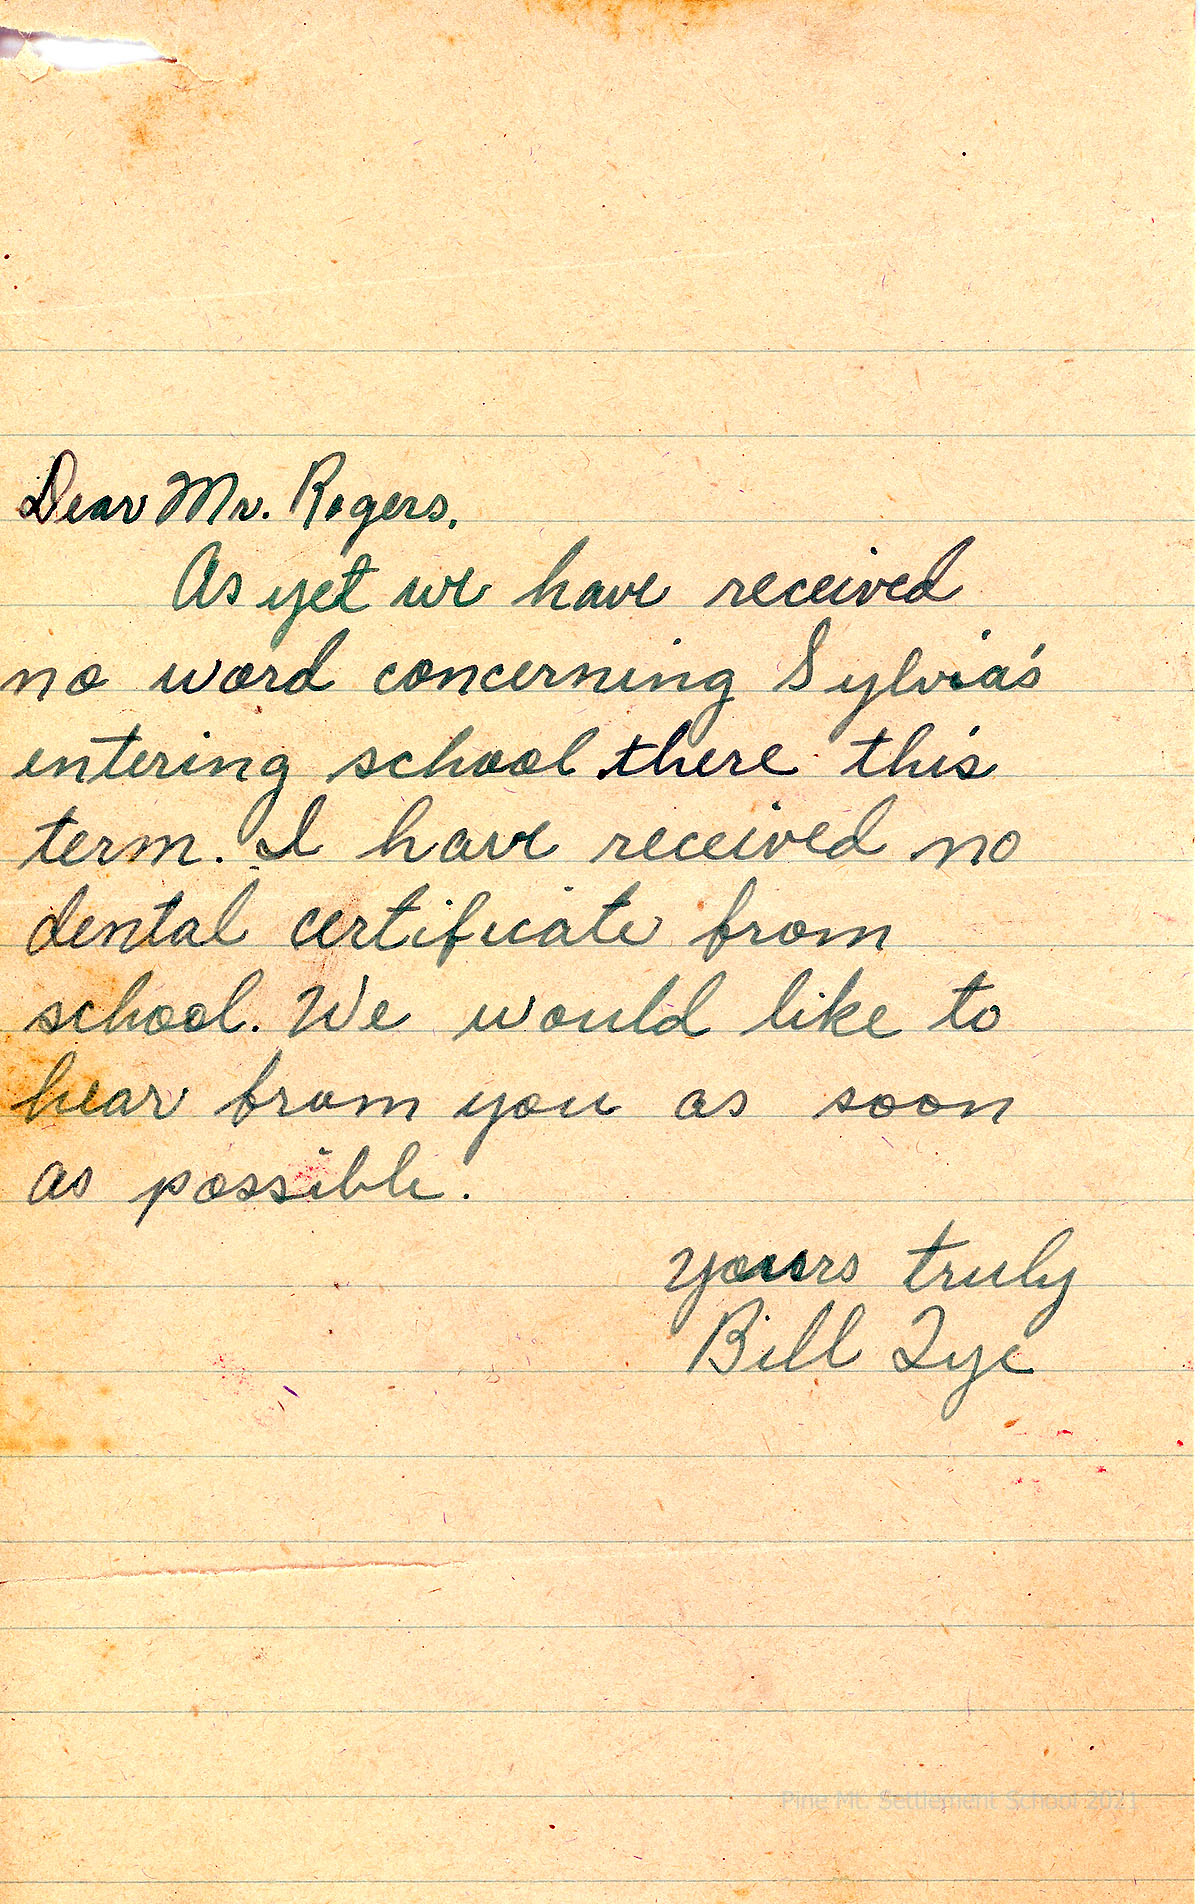 Dear Mr. Rogers.
As yet we have received
no word concerning Sylvia's
entering school there this
term. I have received no
dental certificate from
school. We would like to
hear from you as soon
as possible.
yours truly
Bill Tye
Pine Mt. Settlement School 2021